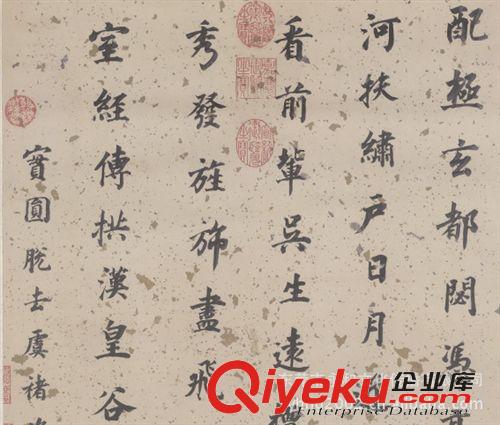 配極玄都閟馮
河扶繡戶日月
看前輩吳生遠
秀發旌斾盡飛
室經傳拱漢皇谷
實圓脫去虞褚
Qiyeku.com 企业库
Enterprise Database